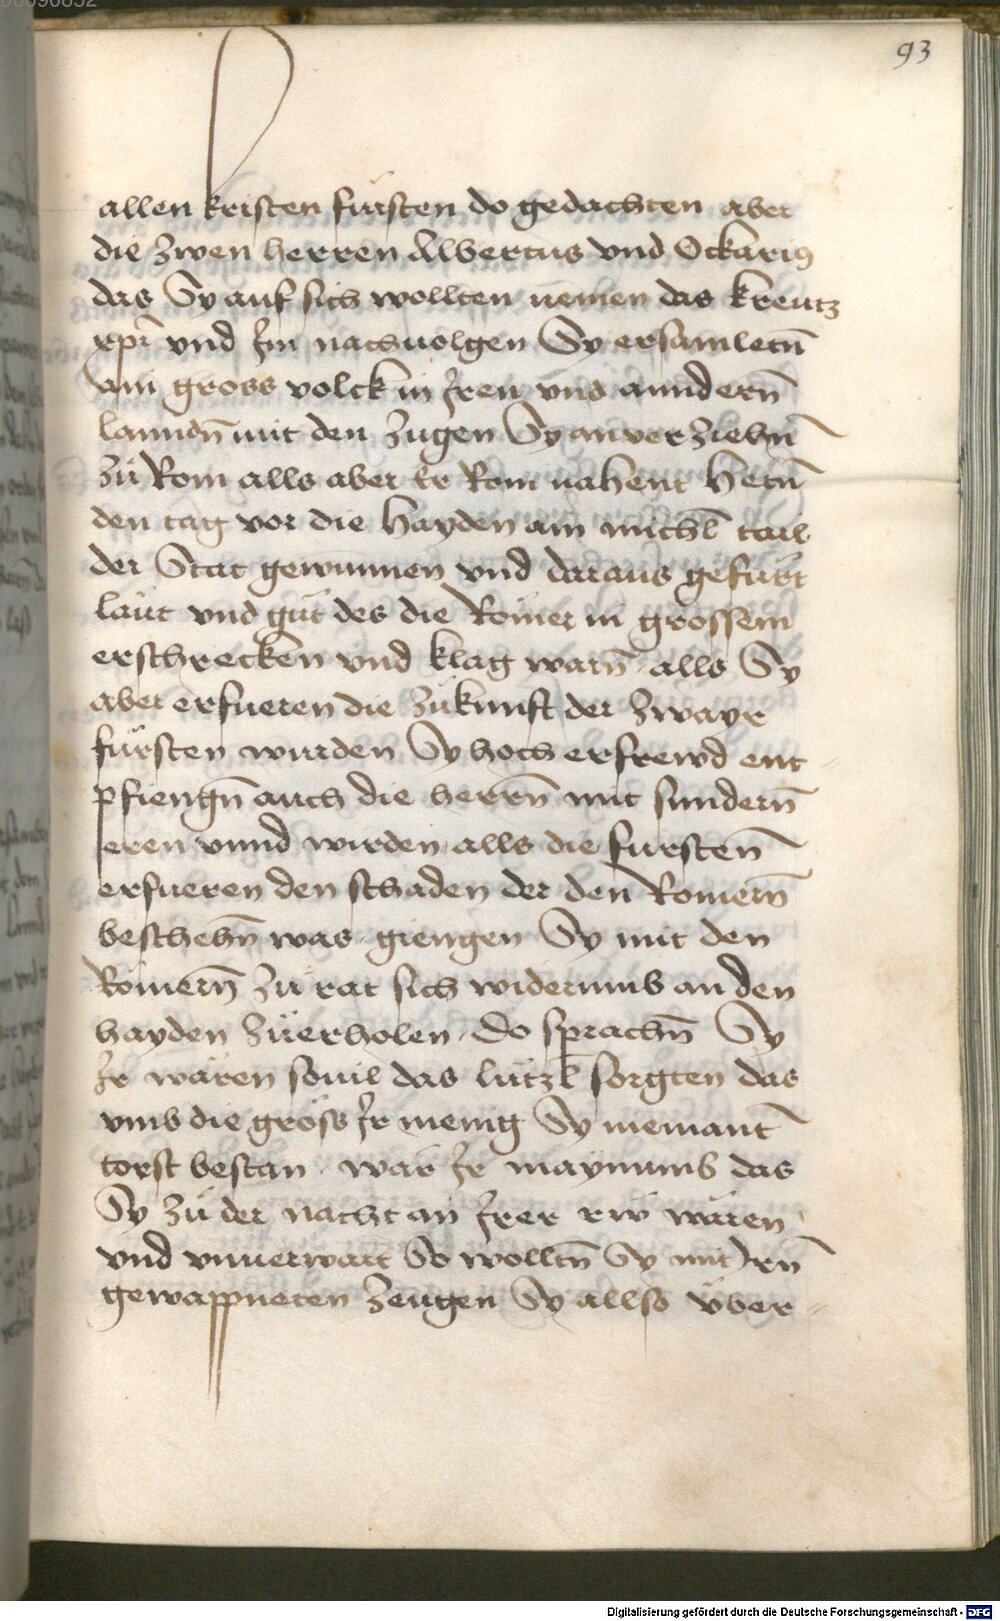 93
allen kristen fürsten do gedachten aber
die zwen herren Albertus vnd Ockarius
das Sy auf sich wollten nemen das kreutz
xpi vnd Im nachuolgen Sy ersamletn̄
ain gross volck in Iren vnd anndern̄
lanndn̄ mit den zugen Sy an verziehn̄
zu Rom alls aber Er Rom nahent hetn̄
den tag vor die hayden ain michl tail
der Stat gewunnen vnd daraus gefürt
läut vnd güt des die Römer in grossem
erschrecken vnd klag warn̄ alls Sy
aber erfueren die zükunft der zwayr
fürsten wurden Sy hoch erfrewd ent=
pfiengn̄ auch die herrn̄ mit sundern̄
eren vnnd wirden alls die fursten̄
erfueren den schaden der den Romern̄
beschehn̄ was giengen Sy mit den
Römern̄ zü rat sich widerumb an den
hayden zuerholen Do sprachn̄ Sy
Ir wären souil das lützl sorgten das
vmb die gröss Ir menig Sy niemant
torst bestan war Ir maynunnb das
Sy zü der nacht an Irer rw wären
vnd vnuerwart So wolltn̄ Sy mit Irn̄
gewappneten zeugen Sy allso über=
Digitalisierung gefördert durch die Deutsche Forschungsgemeinschaft - DFG